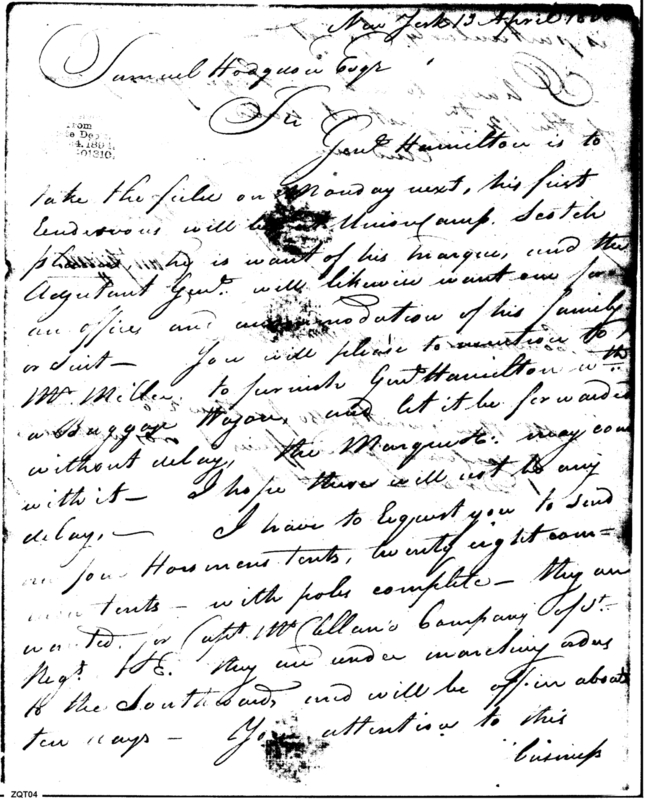 New York 13 April 180
Samuel Hodgdon Esqr
Sir
Genl. Hamilton is to
take the field on Monday next, his first
Rendezvous will be at Union Camp. Scotch
plains, he is want of his marque, and the
Adjutant Genl. will likewise want one for
an office and accommodation of his family
or suit — You will please to mention to
Mr. Miller to furnish Genl. Hamilton with
a Baggage Wagon, and let it be forwarded
without delay, the Marquis &c. may come
with it — I hope there will not be any
delay, — I have to Request you to send
me four Horsemens tents, twenty eight com=
mon tents — with poles complete — they are
wanted for Capt. McClellan's Company of 1st
Regt. A&E. they are under marching orders
to the Southward, and will be off in about
ten days — Your attention to this
business
ZQT04